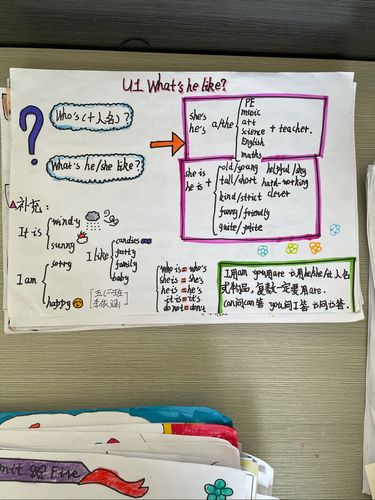 U1 What's he like?
Who's (+人名)?
What's he/she like?
she's
he's
a/the
PE
music
art
science
English
maths
+ teacher.
she is
he is
+
old/young
tall/short
kind/strict
funny/friendly
quite/polite
helpful/shy
hard-working
clever
补充:
It is
windy
sunny
I am
sorry
happy
I like
candies
party
family
baby
[五(二)班
who is = who's
she is = she's
he is = he's
it is = it's
do not = don't
I用am you用are is用he/she/it人名
或物品,复数一定要用are.
can问can答 you问I答 is问is答.
mit
Fire